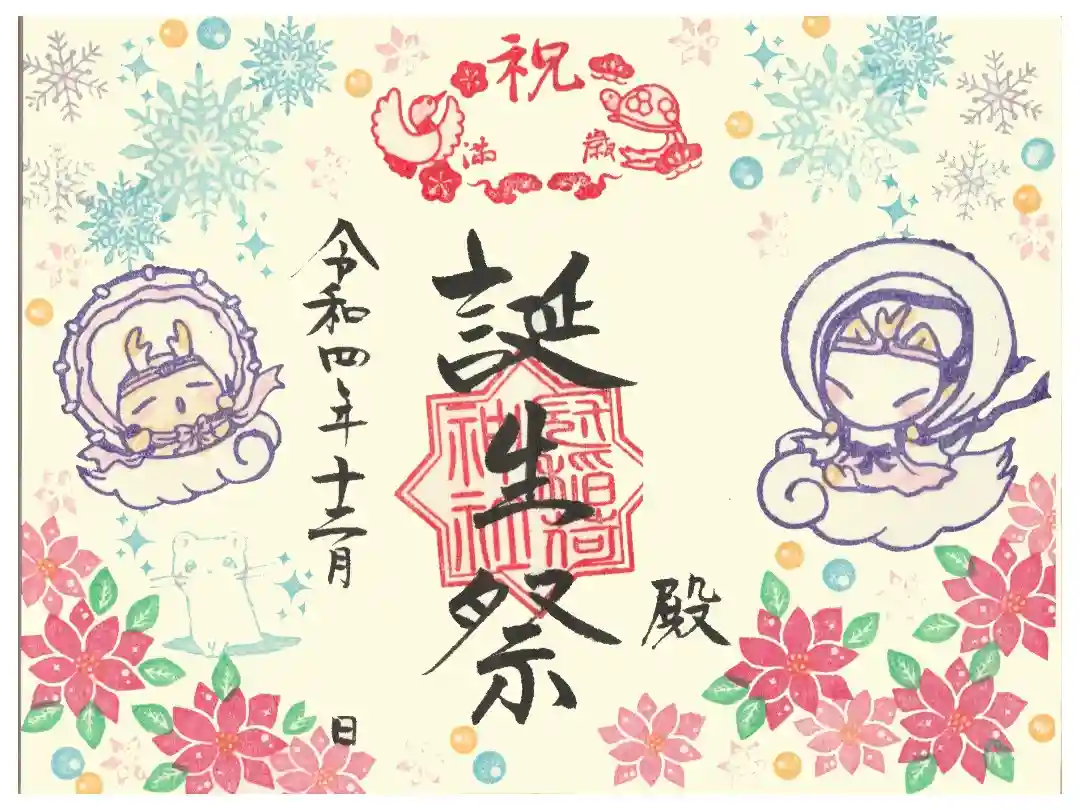 祝
満 歳
誕生祭
冠稲荷
神社
殿
令和四年十二月 日